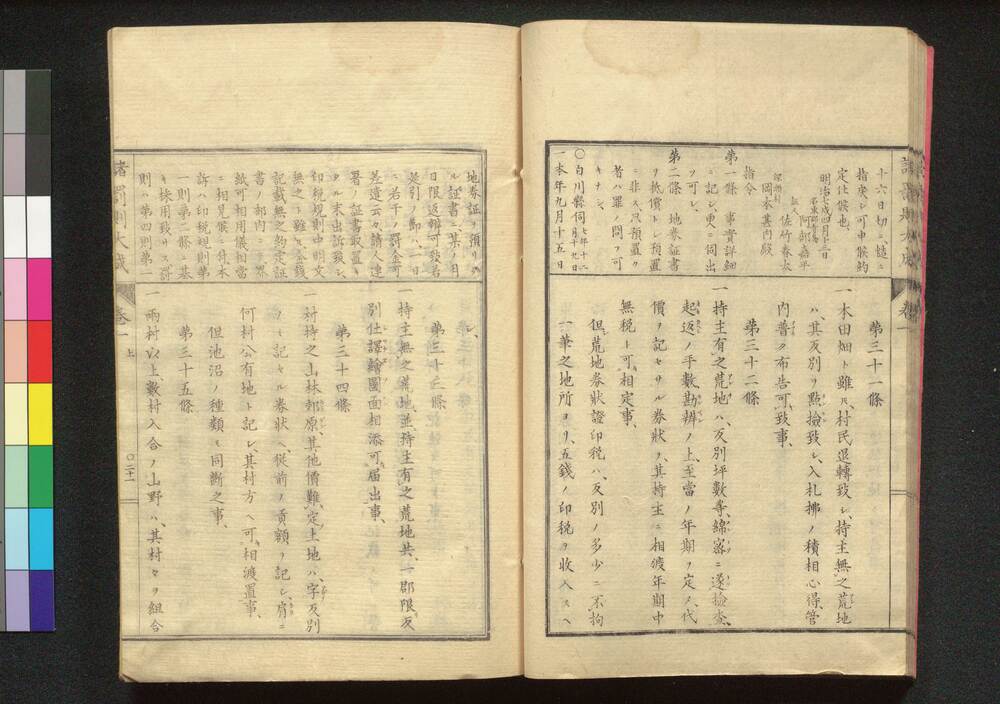 十六日切ニ
定仕候也
明治七年四月七日
佐竹春太
阿部嘉平
指令
岡本甚内殿
第一條 事實詳細
ニ記シ更ニ同出
ツ可シ
第二條 地券証書
ヲ抵償トシ預置
ニ非ス只預置ク
者ハ罪ノ問フ可
キナシ
〇白川縣伺
一本年九月十五日
第三十一條
一木田畑ト雖𪜈村民退轉致シ持主無之荒地
ハ其反別ヲ點撿致シ入札拂ノ積相心得管
内普ク布告可致事
第三十二條
一持主有之荒地ハ反別坪數等綿密ニ遂撿査
起返ノ手數勘辨ノ上至當ノ年期ヲ定メ代
價ヲ記セサル券狀ヲ其持主ニ相渡年期中
無税ト可相定事
但荒地券狀證印税ハ反別ノ多少ニ不拘
一筆之地所ヨリ五錢ノ印税ヲ收入スヘ
シ
地券証ヲ預リタ
ル証書ニ某ノ月
日限返辨可致若
差引ノ節ハ一日
ニ若干ノ罰金可
差遣云々請人連
署ノ証書取置キ
タル末出訴致シ
印税規則中明文
無之ト雖モ金錢
記載無之約定証
書ノ部内ニテ界
紙可相用儀相當
ニ相見候ニ付本
訴ハ印税規則第
一則第二條ニ基
キ採用致サス罸
則ハ第四則第一
第三十三條
一持主無之荒地並持主有之荒地共一郡限反
別仕譯繪圖面相添可届出事
第三十四條
一村持之山林郊原其他價難定土地ハ字反別
ノミ記セル券狀ヘ從前ノ貢額ヲ記シ肩ニ
何村公有地ト記シ其村方ヘ可相渡置事
但池沼ノ種類モ同斷之事
第三十五條
一兩村以上數村入合ノ山野ハ其村々ヲ組合
諸罰則大成
卷一
上